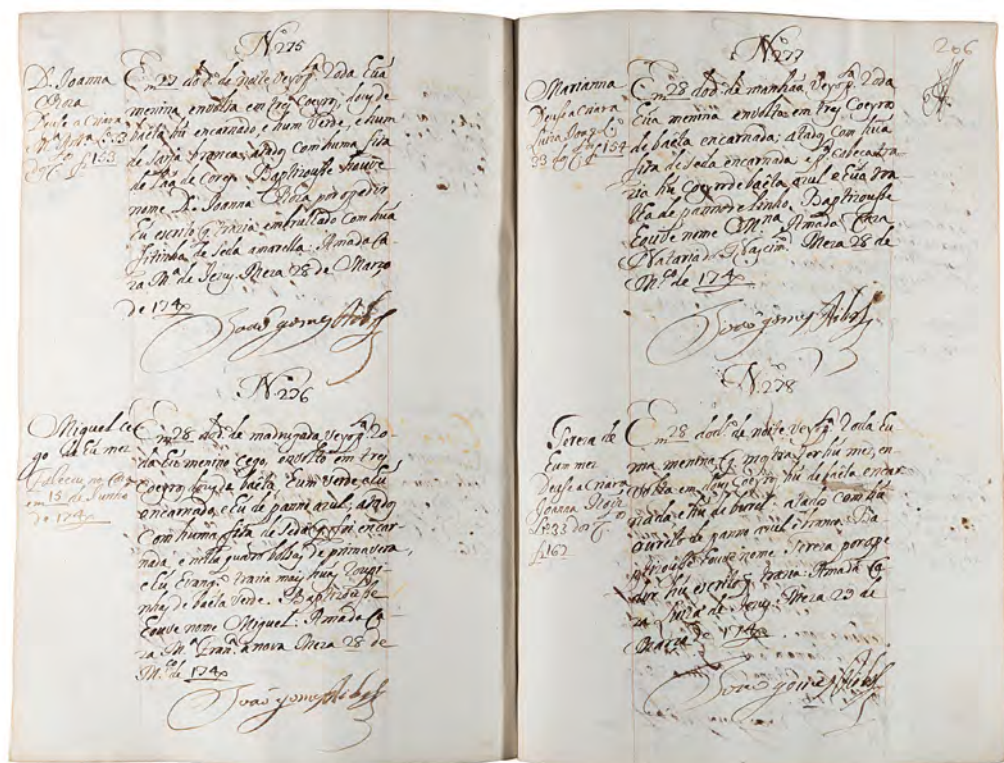 Nº 275
D. Joanna
Roza
Deuse a Criara
L.º 33
f 153
Em 27 do d.º de noite veyo p.ª Roda hũa
menina, envolta em trez Coeyroz, douz de
baeta hũ encarnado, e hum verde, e hum
de Sarja branca, atado com huma fita
de Laã de Corez. Baptizouse houve
nome D. Joanna Roza por o pedir
hũ escrito q trazia embrulhado com hũa
fitinha de Seda amarella. Amada Ca-
za M.ª de Jezuz. Meza 28 de Março
de 174
João gomez
Nº 276
Miguel ce
go de hũ mez
Faleceu na Caza
em 15 de Junho
de 174
Em 28 do d.º de madrugada veyo p.ª Ro-
da hũ menino Cego, envolto em trez
Coeyroz, douz de baeta hum verde, e hũ
encarnado, e hũ de panno azul; atado
Com huma fita de Seda encar
nada, e nella quatro bolsaz de primavera,
e hũ Evang.º trazia maiz hũaz
de baeta verde. Baptizouse
houve nome Miguel. Amada Ca-
za M.ª Fran.ca nova Meza 28 de
M.ço de 174
João gomez
206
Nº 277
Marianna
Deuse a Criara
Luiza
f 154
Em 28 do d.º de manhaã, veyo p.ª Roda
hũa menina envolta em trez Coeyroz
de baeta encarnada; atadoz Com hũa
fita de Seda encarnada e p.ª cabeça tra-
zia hũ Coeyro de baeta azul e hũa
de panno de linho. Baptizouse
houve nome M.na Amada Caza
Nataria do Nascim.to Meza 28 de
M.ço de 174
João gomez
Nº 278
Tereza de
hum mez
Deuse a Criara
Joanna
L.º 33
f 162
Em 28 do d.º de noite veyo p.ª Roda hu-
ma menina q mostra ser hũ mez, en-
volta em douz Coeyroz hũ de baeta encar
nada e hũ de burel: atados com hũ
ourelo de panno azul e branco. Ba-
ptizouse houve nome Tereza por o pe
dir hũ escrito q trazia. Amada Ca
za Luiza de Jezuz. Meza 29 de
Março de 174
João gomez